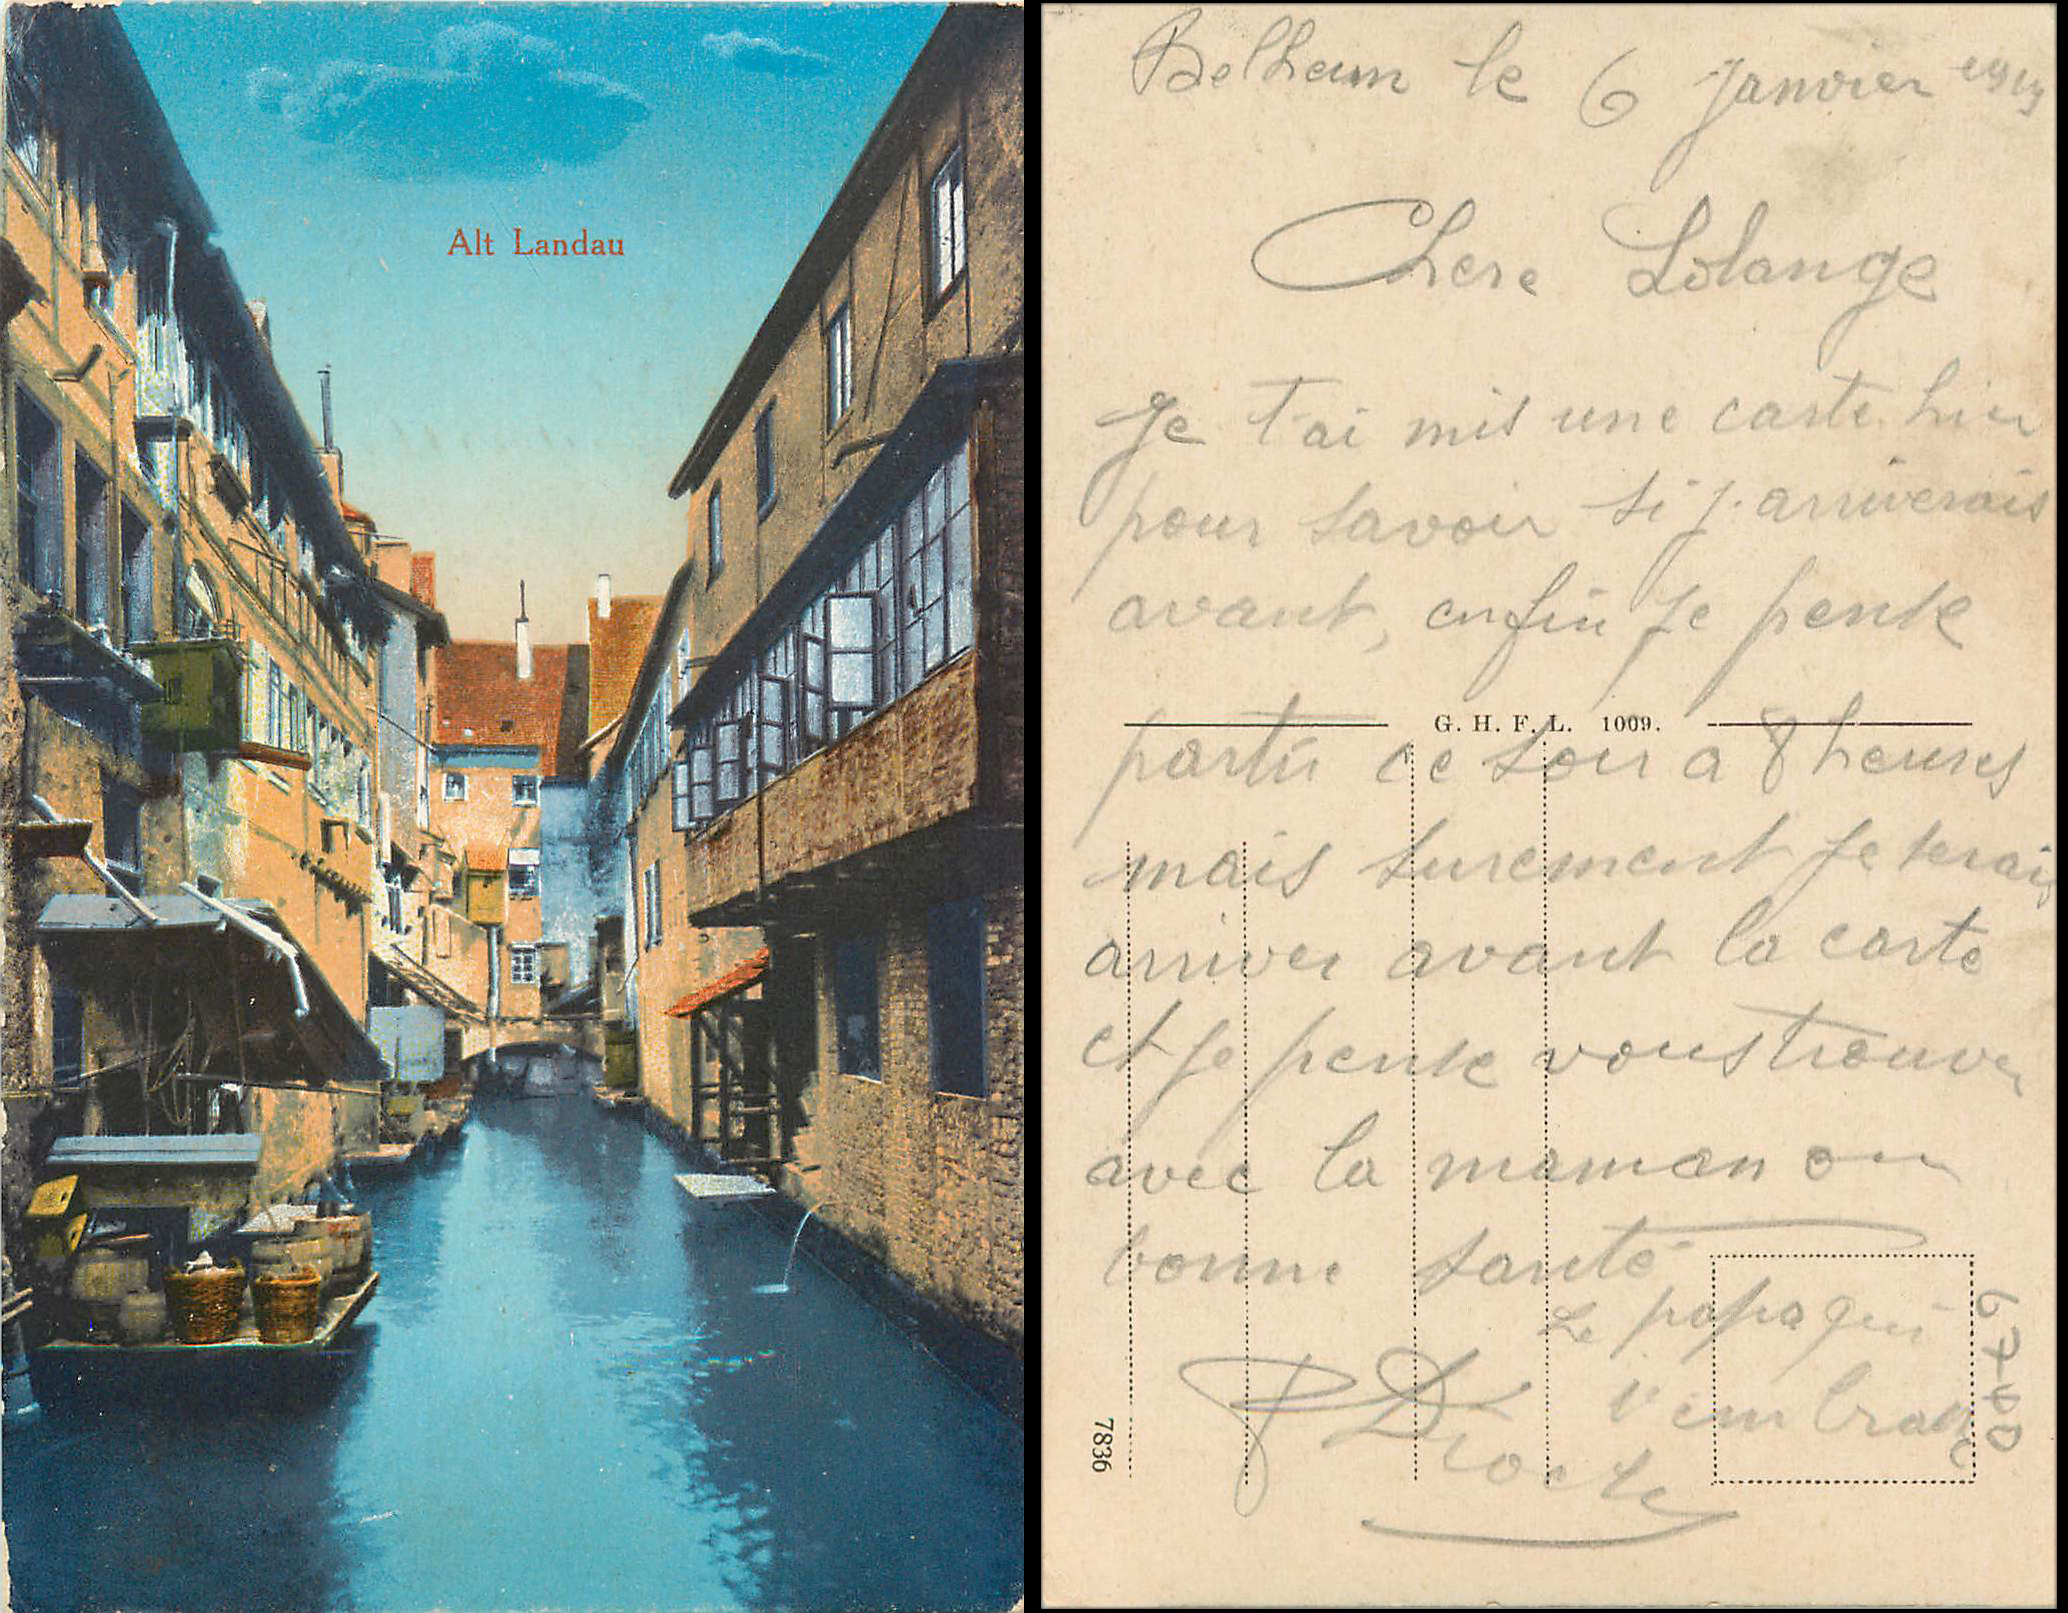 Alt Landau
Belheim le 6 Janvier 1919
Chere Solange
Je t'ai mis une carte hier
pour savoir si j'arriverais
avant, enfin je pense
partir ce soir a 8 heures
G. H. F. L. 1009.
mais surement je serais
arriver avant la carte
et je pense vous trouver
avec la maman en
bonne santé
Le papa qui
t'embrasse
P Droche
7836